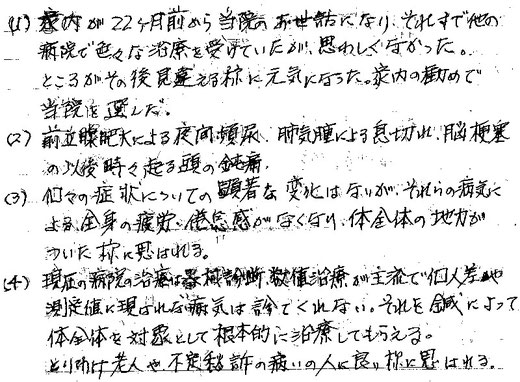 (1) 家内が22ヶ月前から当院のお世話になり、それまで他の
病院で色々な治療を受けていたが、思わしくなかった。
ところがその後見違える様に元気になった。家内の勧めで
当院を選んだ。
(2) 前立腺肥大による夜間頻尿、肺気腫による息切れ、脳梗塞
の以後時々起る頭の鈍痛。
(3) 個々の症状についての顕著な変化はないが、それらの病気に
よる全身の疲労、倦怠感がなくなり、体全体の地力が
ついた様に思はれる。
(4) 現在の病院の治療は器械診断、数値治療が主流で個人差や
測定値に現はれない病気は診てくれない。それを鍼によって
体全体を対象として根本的に治療してもらえる。
とりわけ老人や、不定愁訴の病いの人に良い様に思はれる。